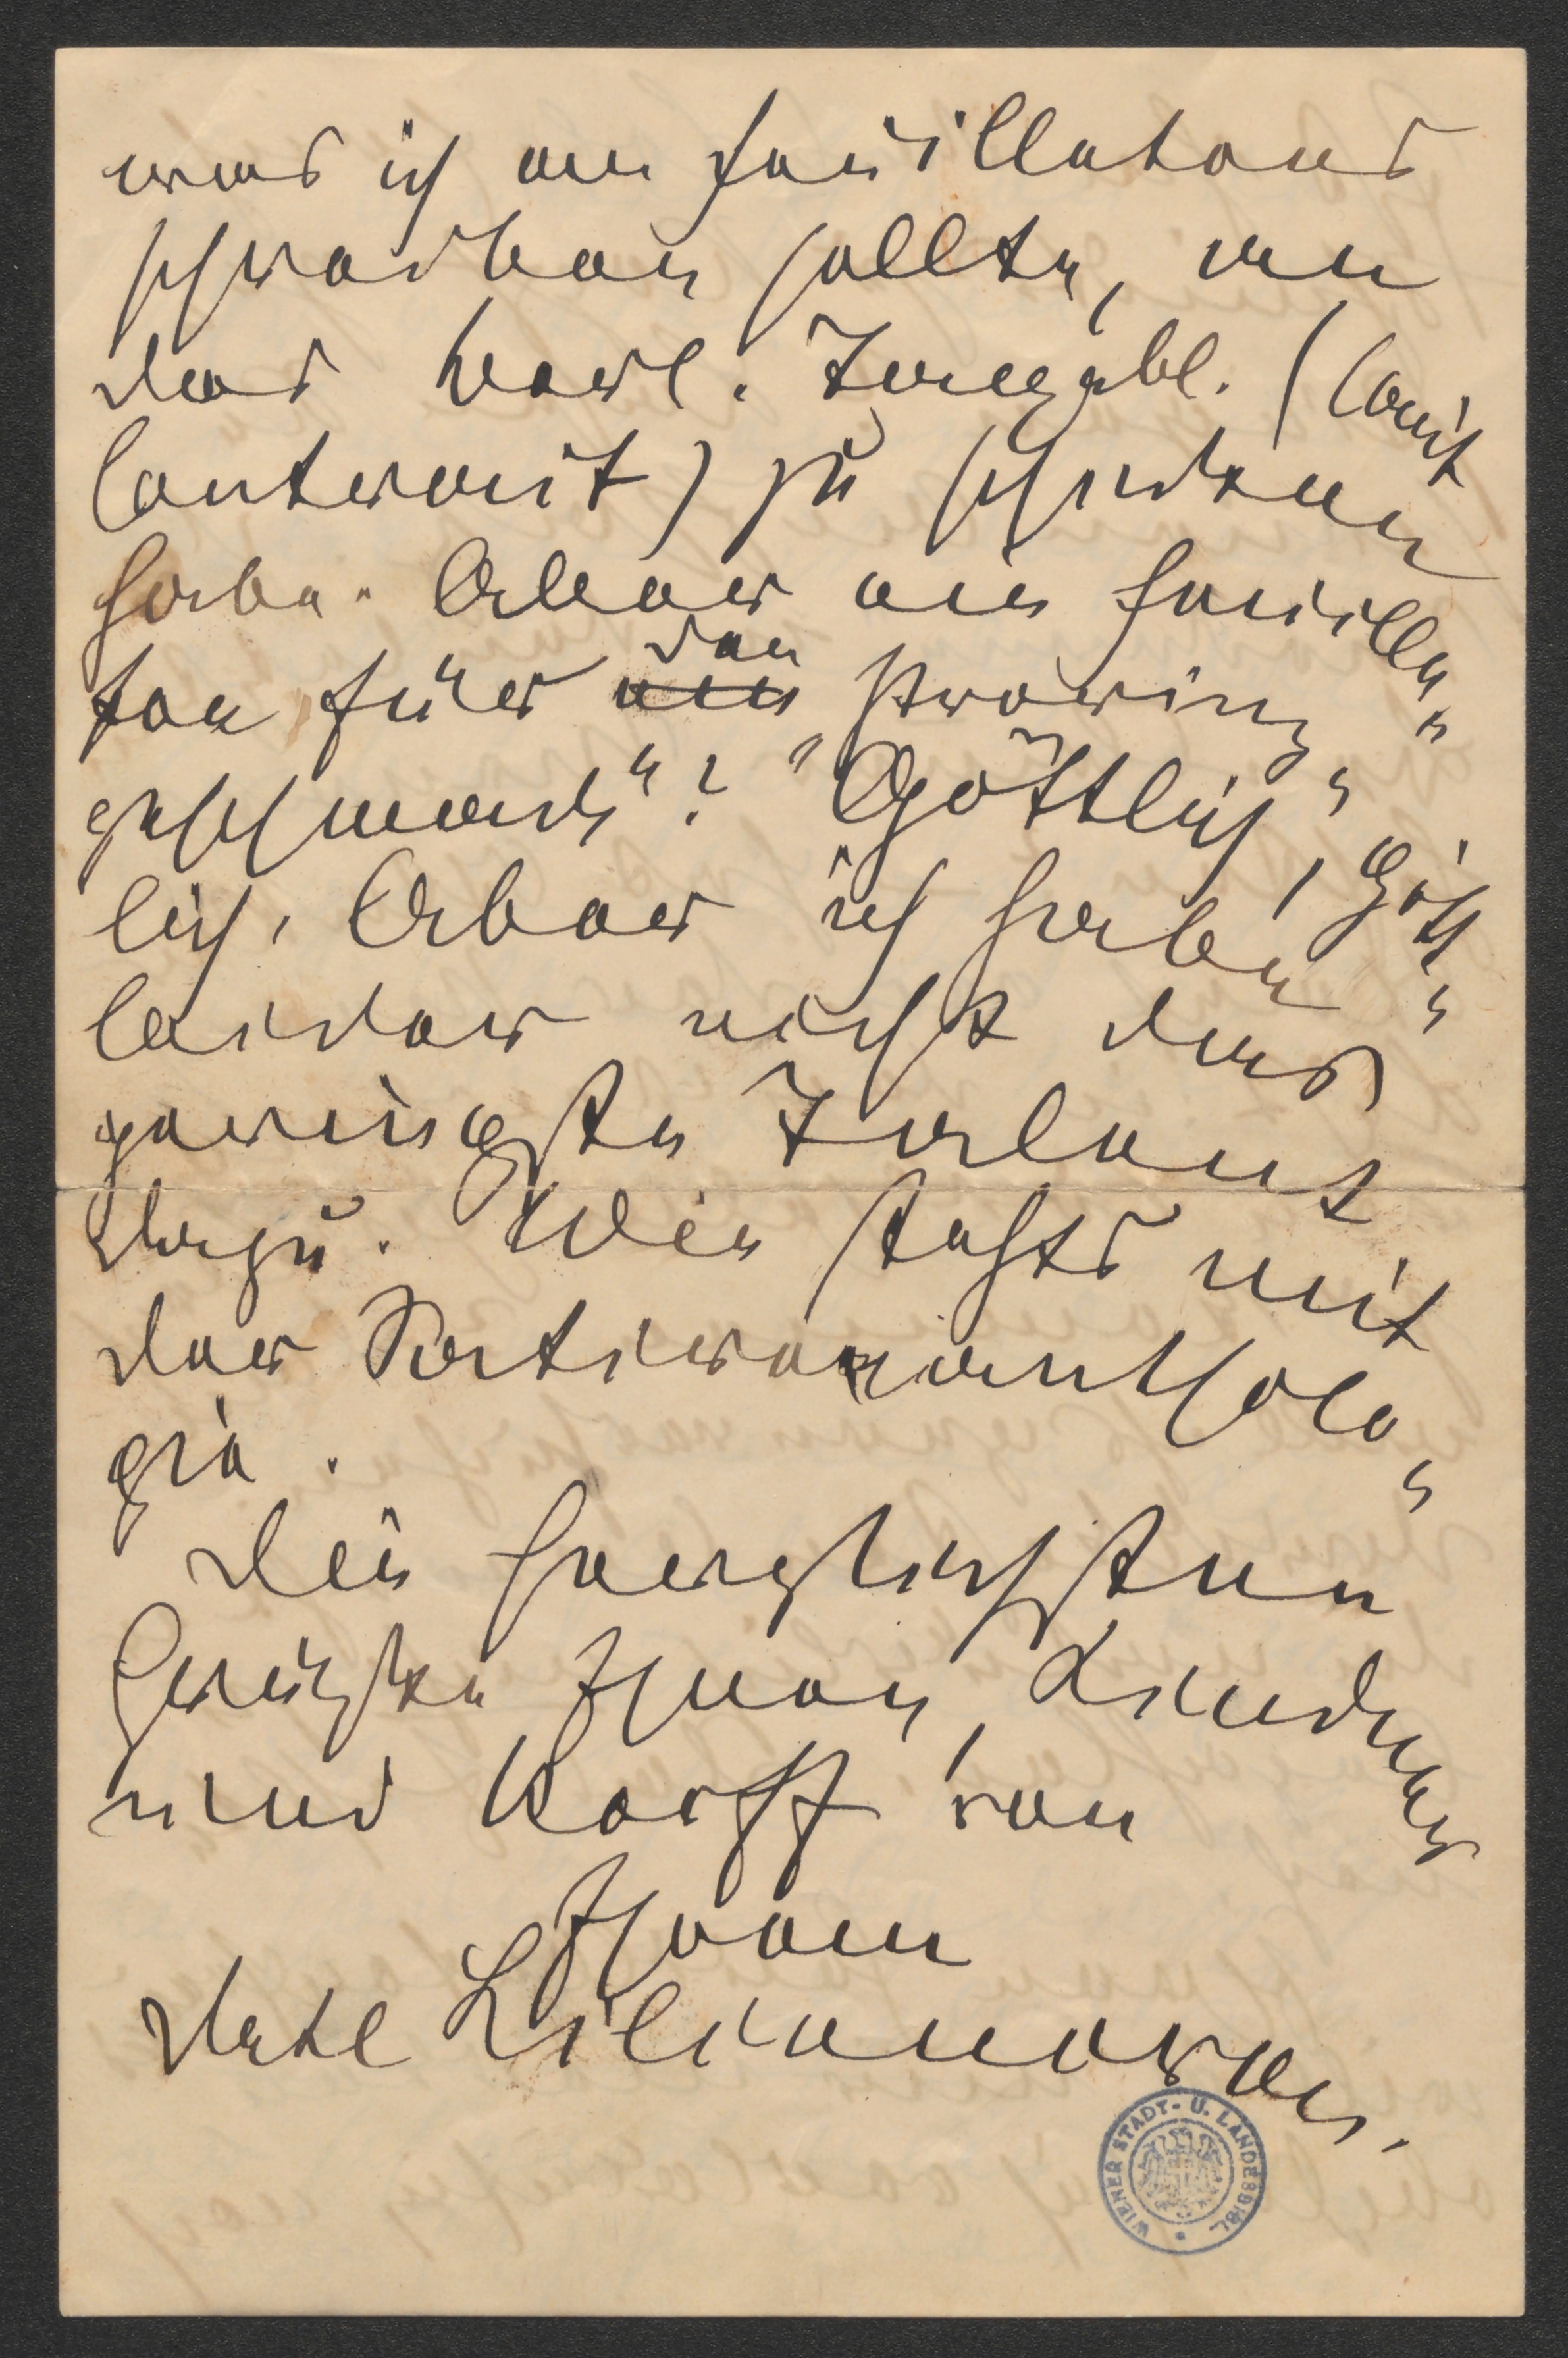 was ich an Feuilletons
schreiben sollte, an
das Berl. Tagebl. (laut
Contract) zu schicken
habe. Aber ein Feuille-
ton für den Provinz-
geschmack"? "Göttlich, gött-
lich. Aber ich habe
leider nicht das
geringste Talent
dazu. Wie stehts mit
der Satirenantholo-
gie.
Die herzlichsten
Grüsse Ihnen, Lindner
und Korff von
Ihrem
Detl Liliencron.
WIENER STADT- U. LANDESBIBL.